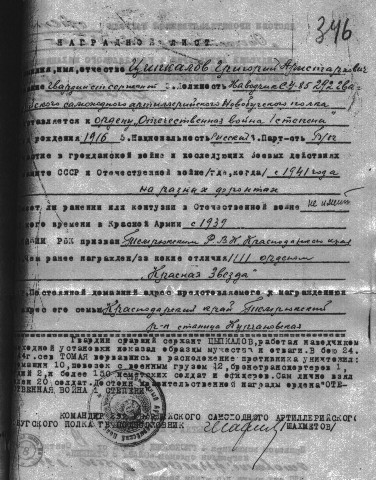 346
НАГРАДНОЙ ЛИСТ
имя, отчество Цыпкалов Григорий Аристархович
гвардии ст сержант 2. Должность Наводчик СУ-85 292 гва-
йского самоходного артиллерийского Новобугского полка
тавляется к ордену "Отечественная война I степени"
рождения 1916 5. Национальность Русский. Парт-ость б/п
астие в гражданской войне и последующих боевых действиях
ащите СССР и Отечественной войне /где, когда/ с 1941 года
на разных фронтах
ет ли ранении или контузии в Отечественной войне не имеет
ого времени в Красной Армии с 1939
РВК призван Темрюкским РВК Краснодарского края
Чем ранее награжден /за какие отличия/ орденом
"Красная Звезда"
Постоянной домашний адрес представляемого к награждению
адрес его семьи Краснодарский край Темрюкский
р-н станица
Гвардии старший сержант ЦЫПКАЛОВ, работая наводчиком
ходной установки показал образцы мужества и отваги. В бою 24.
4г. сев ТОМАЯ ворвавшись в расположение противника уничтожил:
машин 10, повозок с военным грузом 12, бронетранспортеров 1,
ий 2, и более 150 немецких солдат и офицеров. Сам лично взял
ен 20 солдат. Достоин правительственной награды ордена "ОТЕ-
ТВЕННАЯ ВОЙНА 1 СТЕПЕНИ"
КОМАНДИР ЙСКОГО САМОХОДНОГО АРТИЛЛЕРИЙСКОГО
УГСКОГО ПОЛКА ПОДПОЛКОВНИК /ШАХМЕТОВ/